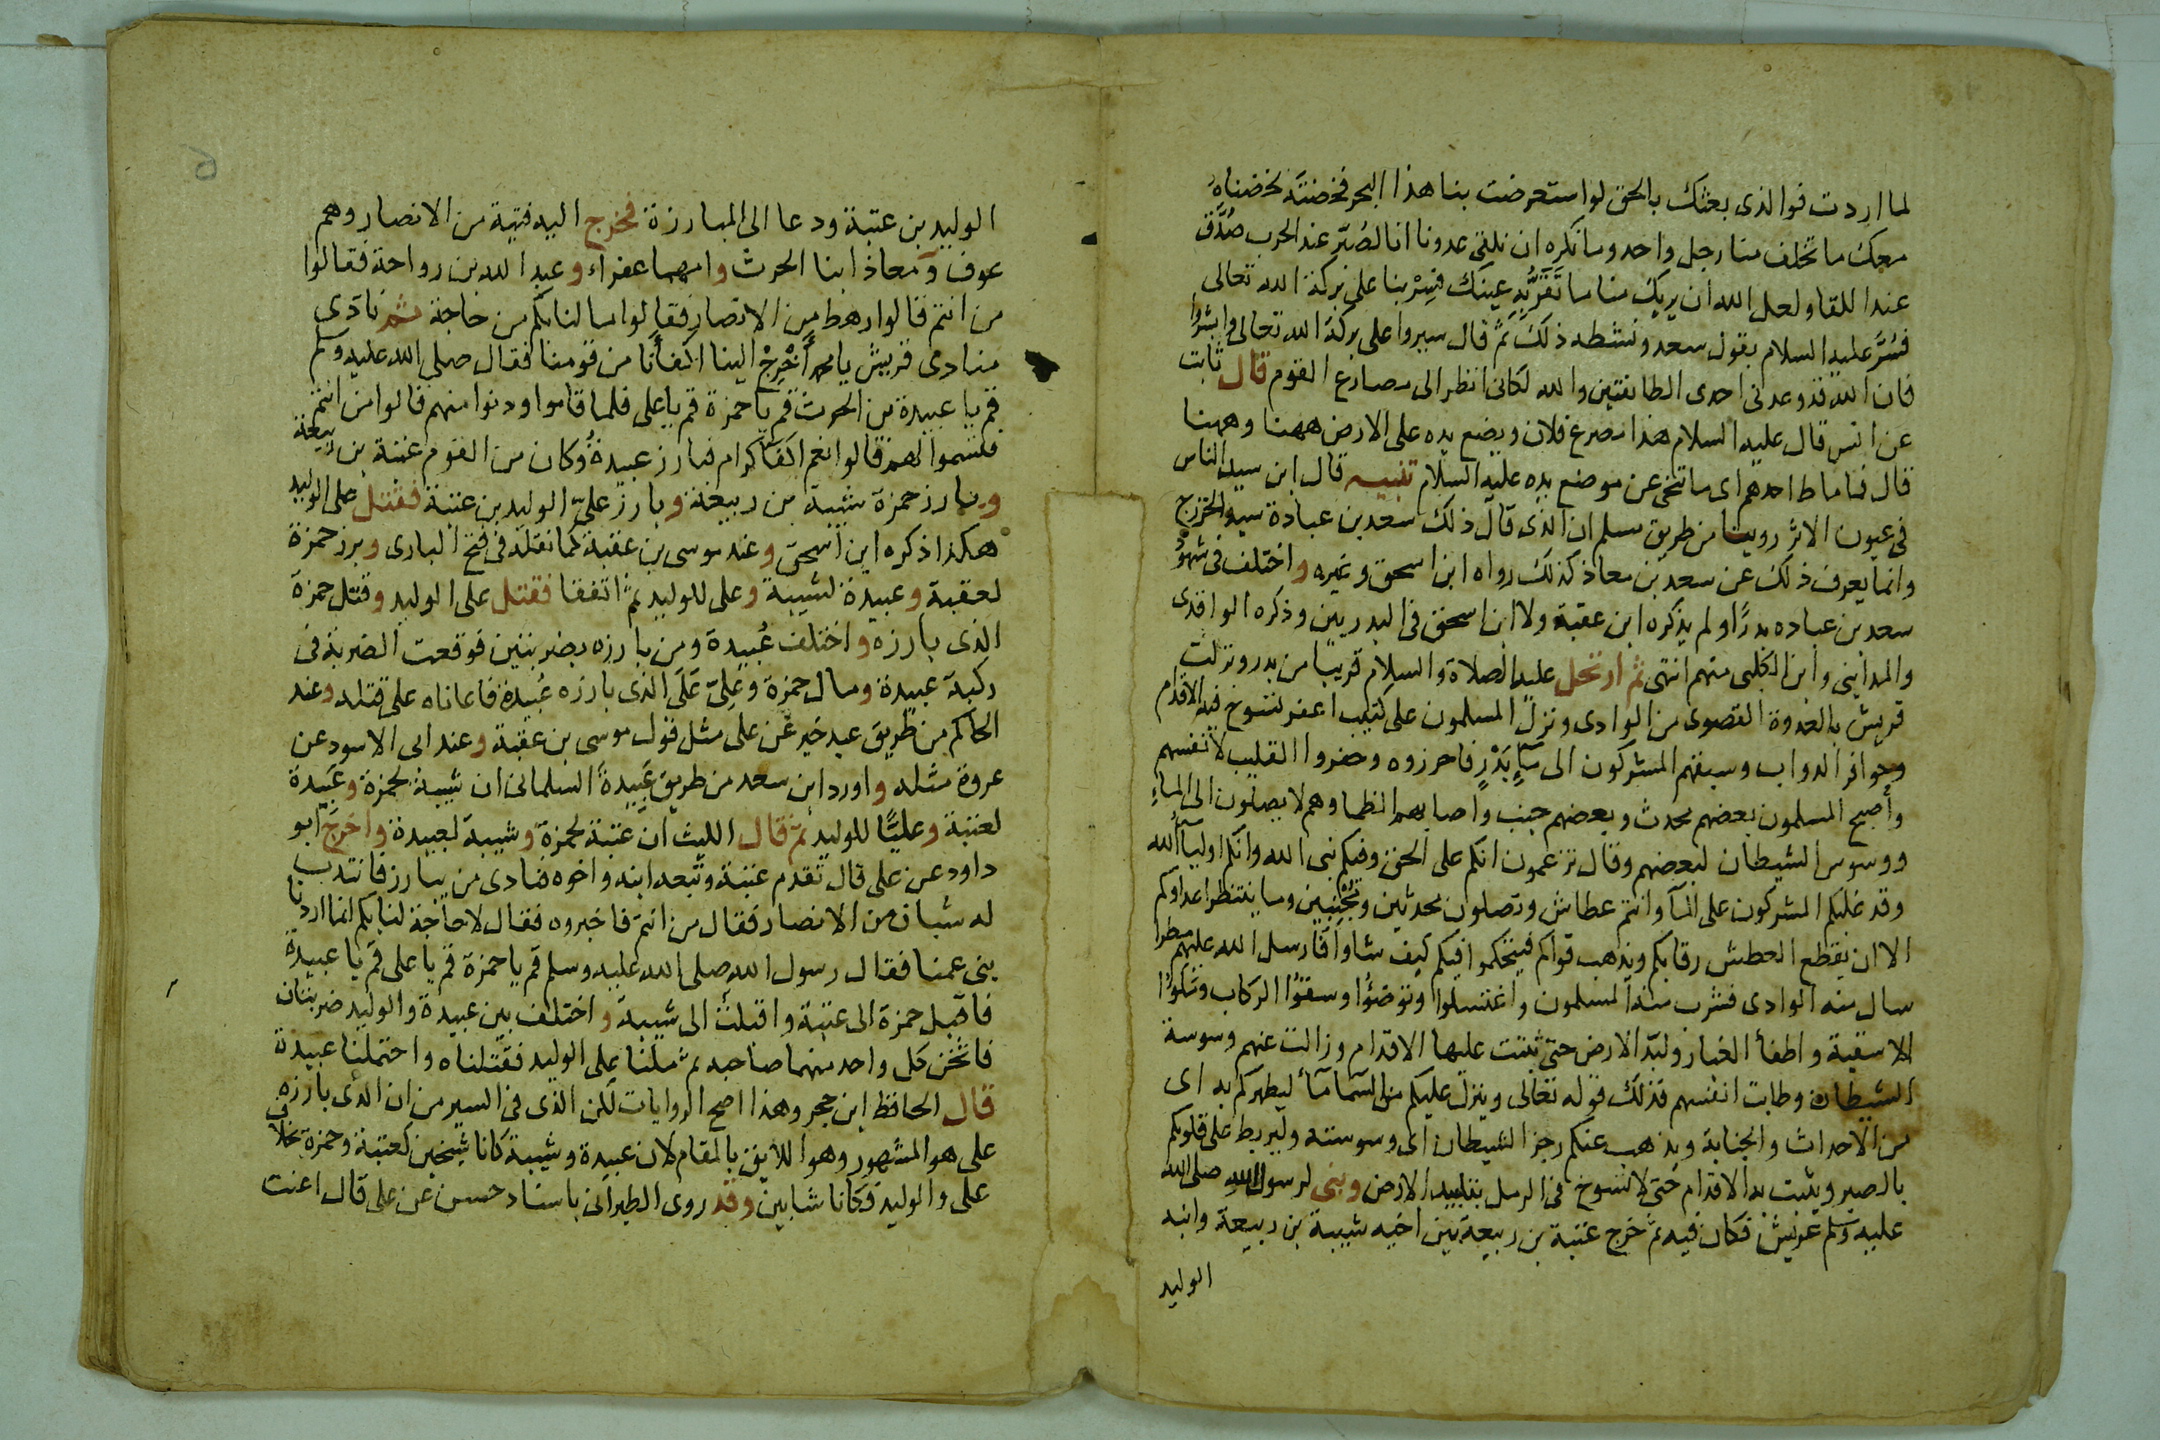 لما اردت فوالذى بعثك بالحق لو استعرضت بنا هذا البحر فخضته لخضناه
معك ما تخلف منا رجل واحد وما نكره ان نلقى عدونا انا لصُبَّر عند الحرب صُدَّق
عند اللقا ولعل الله ان يريك منا ما تَقَرُّ به عينك فسِرْ بنا على بركة الله تعالى
فسُرَّ عليه السلام بقول سعد ونشطه ذلك ثم قال سيروا على بركة الله تعالى وابشروا
فان الله قد وعدنى احدى الطائفتين والله لكانى انظر الى مصارع القوم قال ثابت
عن انس قال عليه السلام هذا مصرع فلان ويضع يده على الارض ههنا وههنا
قال فما ماط احدهم اى ما تنحى عن موضع يده عليه السلام تنبيه قال ابن سيد الناس
فى عيون الاثر روينا من طريق مسلم ان الذى قال ذلك سعد بن عبادة سيد الخزرج
وانما يعرف ذلك عن سعد بن معاذ كذلك رواه ابن اسحق وغيره واختلف فى شهود
سعد بن عباده بدرًا ولم يذكره ابن عقبة ولا ابن اسحق فى البدريين وذكره الواقدى
والمداينى وابن الكلبى منهم انتهى ثم ارتحل عليه الصلاة والسلام قريبا من بدر ونزلت
قريش بالعدوة القصوى من الوادى ونزل المسلمون على كثيب اعفر تسوخ فيه الاقدام
وحوافر الدواب وسبقهم المشركون الى مآءِ بَدْرٍ فاحرزوه وحفروا القليب لانفسهم
واصبح المسلمون بعضهم محدث وبعضهم جنب واصابهم الظما وهم لا يصلون الى الماءِ
ووسوس الشيطان لبعضهم وقال تزعمون انكم على الحق وفيكم نبى الله وانكم اوليآء الله
وقد غلبكم المشركون على المآ وانتم عطاش وتصلون محدثين ومُجْنِبِين وما ينتظر اعداوكم
الا ان يقطع العطش رقابكم ويذهب قواكم فيتحكموا فيكم كيف شاوا فارسل الله عليهم مطرا
سال منه الوادى فشرب منه المسلمون واغتسلوا وتوضؤُا وسقوُا الركاب وملؤُا
الاسقية واطفأ الغبار ولبّد الارض حتى ثبتت عليها الاقدام وزالت عنهم وسوسة
الشيطان وطابت انفسهم فذلك قوله تعالى وينزل عليكم من السما مآء ليطهركم به اى
من الاحداث والجنابة ويذهب عنكم رجز الشيطان اى وسوسته وليربط على قلوبكم
بالصبر ويثبت به الاقدام حتى لا تسوخ فى الرمل بتلبيد الارض وبنى لرسول الله صلى الله
عليه وسلم عريش فكان فيه ثم خرج عتبة بن ربيعة بين اخيه شيبة بن ربيعة وابنه
الوليد
الوليد بن عتبة ودعا الى المبارزة فخرج اليه فتية من الانصار وهم
عوف ومعاذ ابنا الحرث وامهما عفراء وعبد الله بن رواحة فقالوا
من انتم قالوا رهط من الانصار فقالوا ما لنا بكم من حاجة ثم نادى
منادى قريش يا محمد أَخْرِجْ الينا اكفأنا من قومنا فقال صلى الله عليه وسلم
قم يا عبيدة بن الحرث قم يا حمزة قم يا على فلما قاموا ودنوا منهم قالوا من انتم
فتسموا لهم قالوا نعم اكفا كرام فبارز عبيدةُ وكان من القوم عتبة بن ربيعة
وبارز حمزة شيبة بن ربيعة وبارز علىّ الوليد بن عتبة فقتل على الوليد
هكذا ذكره ابن اسحق وعند موسى بن عقبة كما نقله فى فتح البارى وبرز حمزة
لعقبة وعبيدة لشيبة وعلى للوليد ثم اتفقا فقتل على الوليد وقتل حمزة
الذى بارزه واختلف عُبيدة ومن بارزه بضربتين فوقعت الضربة فى
ركبة عبيدة ومال حمزة وعلىّ عَلَى الذى بارزه عُبيدة فاعاناه على قتله وعند
الحاكم من طريق عبد خير عن على مثل قول موسى بن عقبة وعند ابى الاسود عن
عروة مثله واورد ابن سعد من طريق عَبِيدةَ السلمانى ان شيبة لحمزة وعُبَيدة
لعتبة وعليًّا للوليد ثم قال الليث ان عتبة لحمزة وشيبة لعبيدة واخرج ابو
داود عن على قال تقدم عتبة وتبعه ابنه واخوه فنادى من يبارز فانتدب
له شباب من الانصار فقال من انتم فاخبروه فقال لا حاجة لنا بكم انما اردنا
بنى عمنا فقال رسول الله صلى الله عليه وسلم قم يا حمزة قم يا على قم يا عبيدة
فاقبل حمزة الى عتبة واقبلتُ الى شيبة واختلف بين عبيدة والوليد ضربتان
فاثخن كل واحد منهما صاحبه ثم ملنا على الوليد فقتلناه واحتملنا عبيدة
قال الحافظ ابن حجر وهذا اصح الروايات لكن الذى فى السير من ان الذى بارزه
على هو المشهور وهو اللايق بالمقام لان عبيدة وشيبة كانا شيخين كعتبة وحمزة بخلاف
على والوليد فكانا شابين وقد روى الطبرانى باسناد حسن عن على قال اعنت